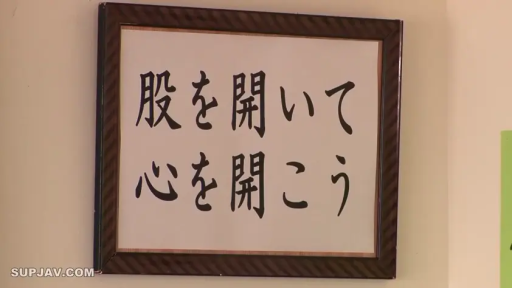 股を開いて
心を開こう
SUPJAV.COM